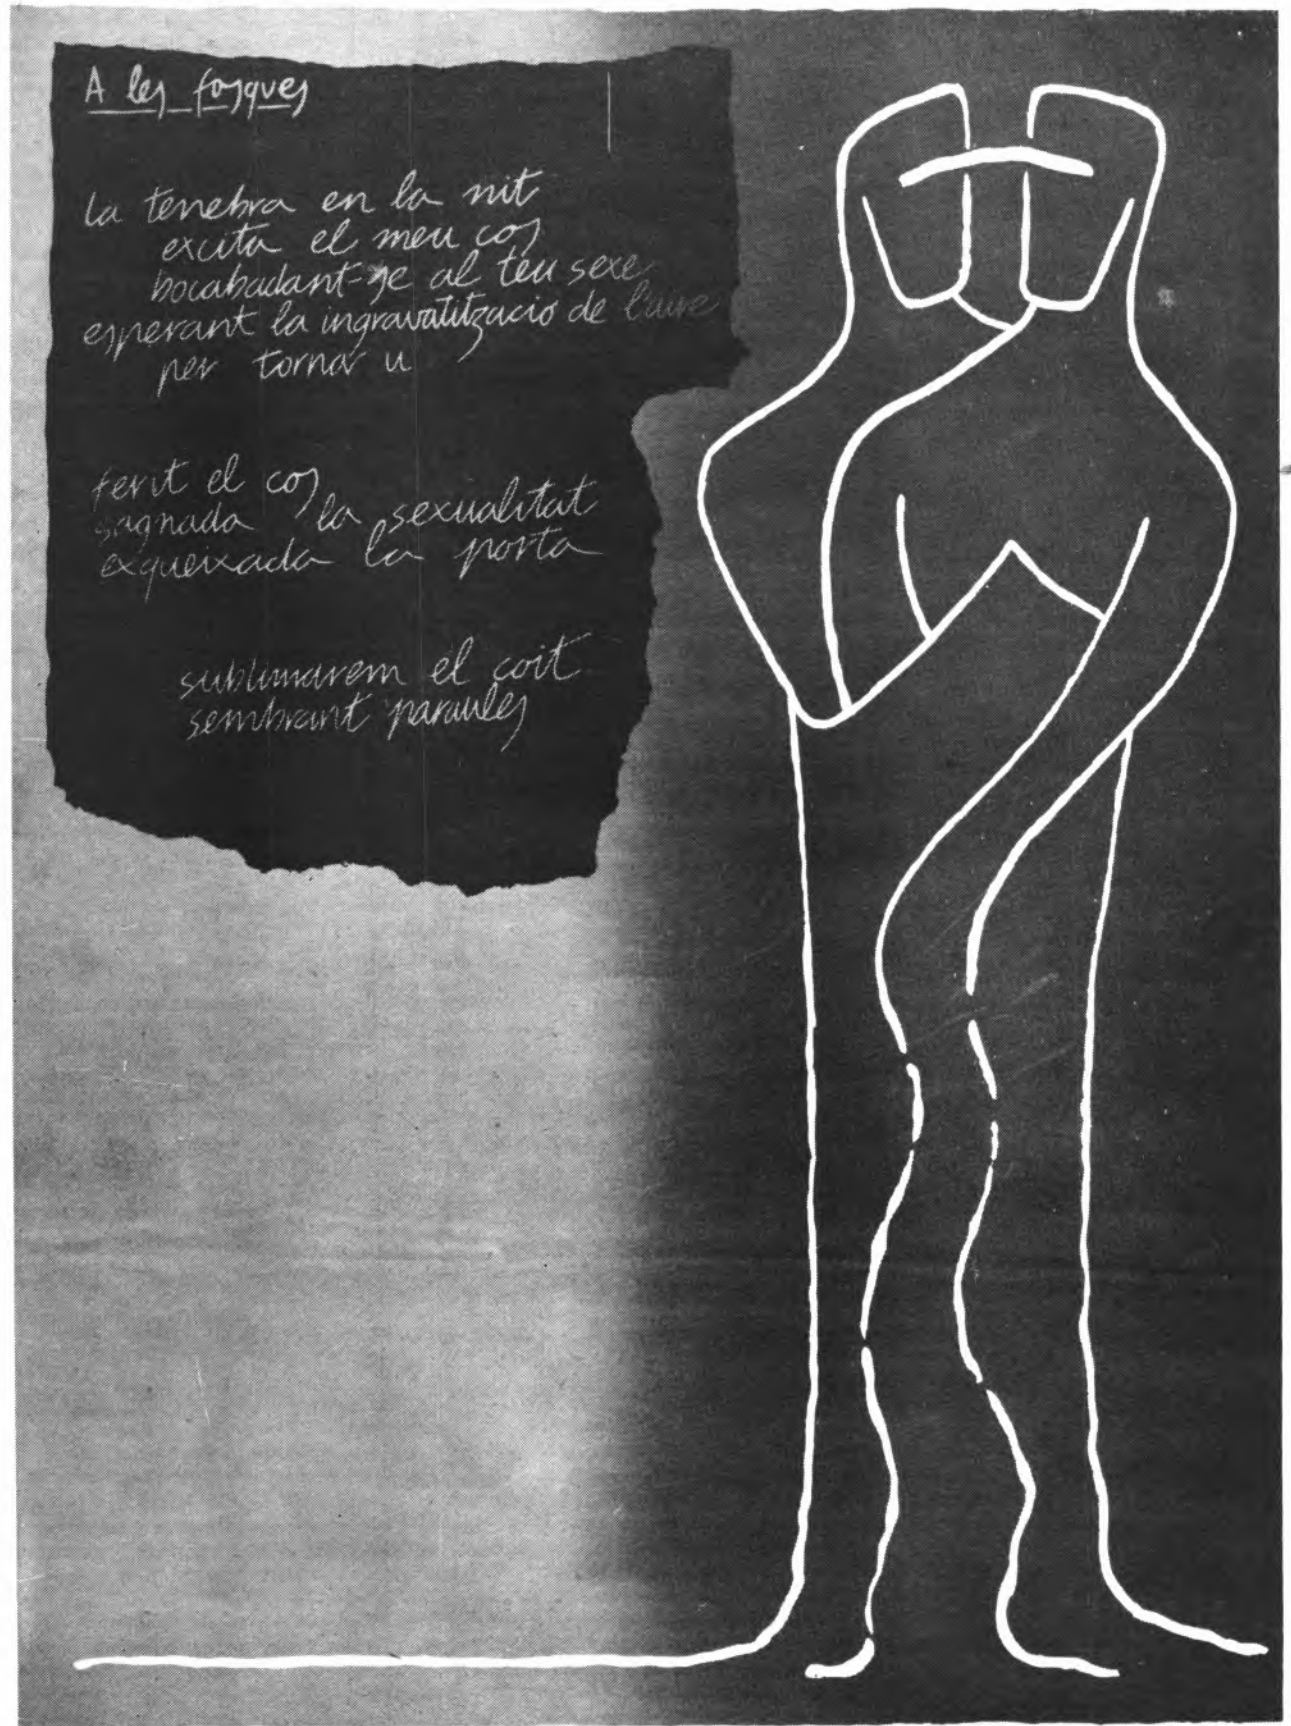 A les fosques
La tenebra en la nit
excita el meu cos
bocabadant-se al teu sexe
esperant la ingravatització de l'aire
per tornar u
ferit el cos
sagnada la sexualitat
exqueixada la porta
sublimarem el coit
sembrant paraules